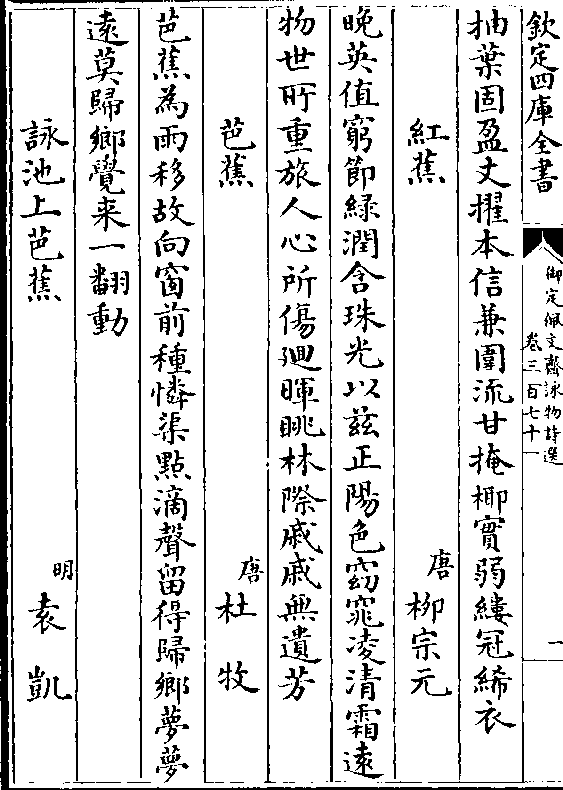 欽定四庫全書
御定佩文齋詠物詩選
卷三百七十一
一
抽葉固盈丈擢本信兼圍流甘掩椰實弱縷冠絺衣
紅蕉
唐
柳宗元
晚英值窮節緑潤含珠光以兹正陽色窈窕凌清霜遠
物世所重旅人心所傷廻暉眺林際戚戚無遺芳
芭蕉
唐
杜牧
芭蕉為雨移故向窗前種憐渠點滴聲留得歸鄉夢夢
遠莫歸鄉覺来一翻動
詠池上芭蕉
明
袁凱